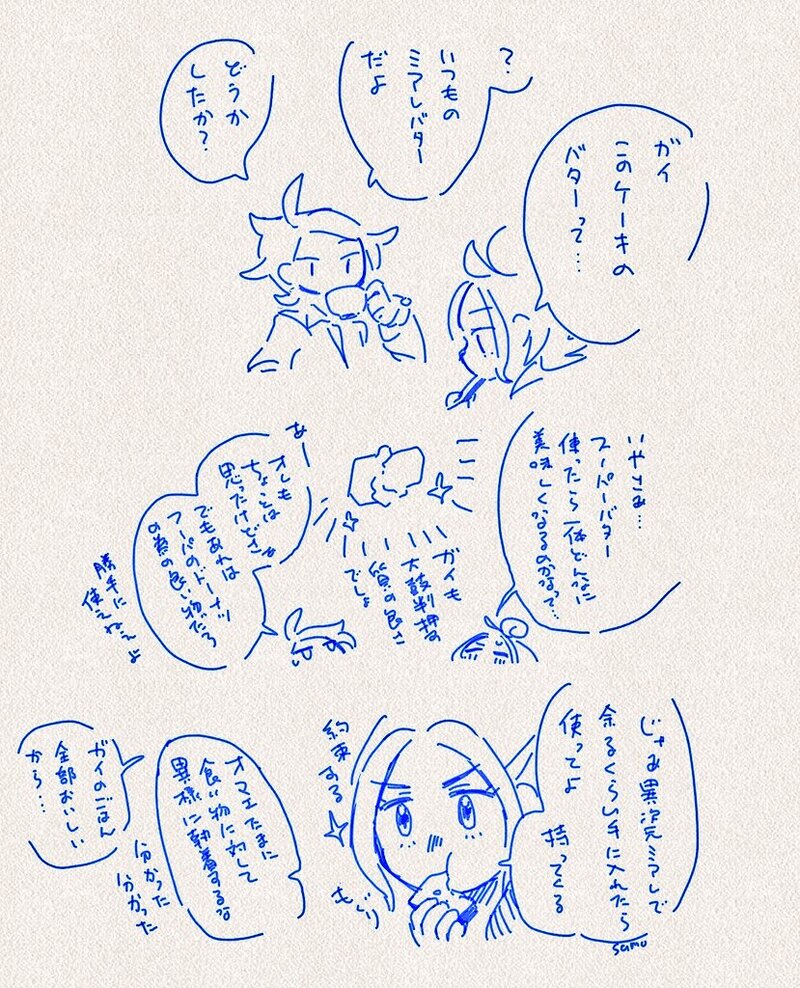 ガイ
このケーキの
バターって…
?
いつもの
ミアレバター
だよ
どうか
したか?
いやさぁ…
スーパーバター
使ったら一体どんなに
美味しくなるのかなって…
ガイも
太鼓判押す
質の良さ
でしょ
あー
オレも
ちょっとは
思ったけどさぁ
でもあれは
フーパのドーナツ
の為の良い物だろ
勝手に
使えねぇよ
じゃあ異次元ミアレで
余るくらい手に入れたら
使ってよ
持ってくる
約束する
もぐり
オマエたまに
食い物に対して
異様に執着するな
ガイのごはん
全部おいしい
から…
分かった
分かった
samo